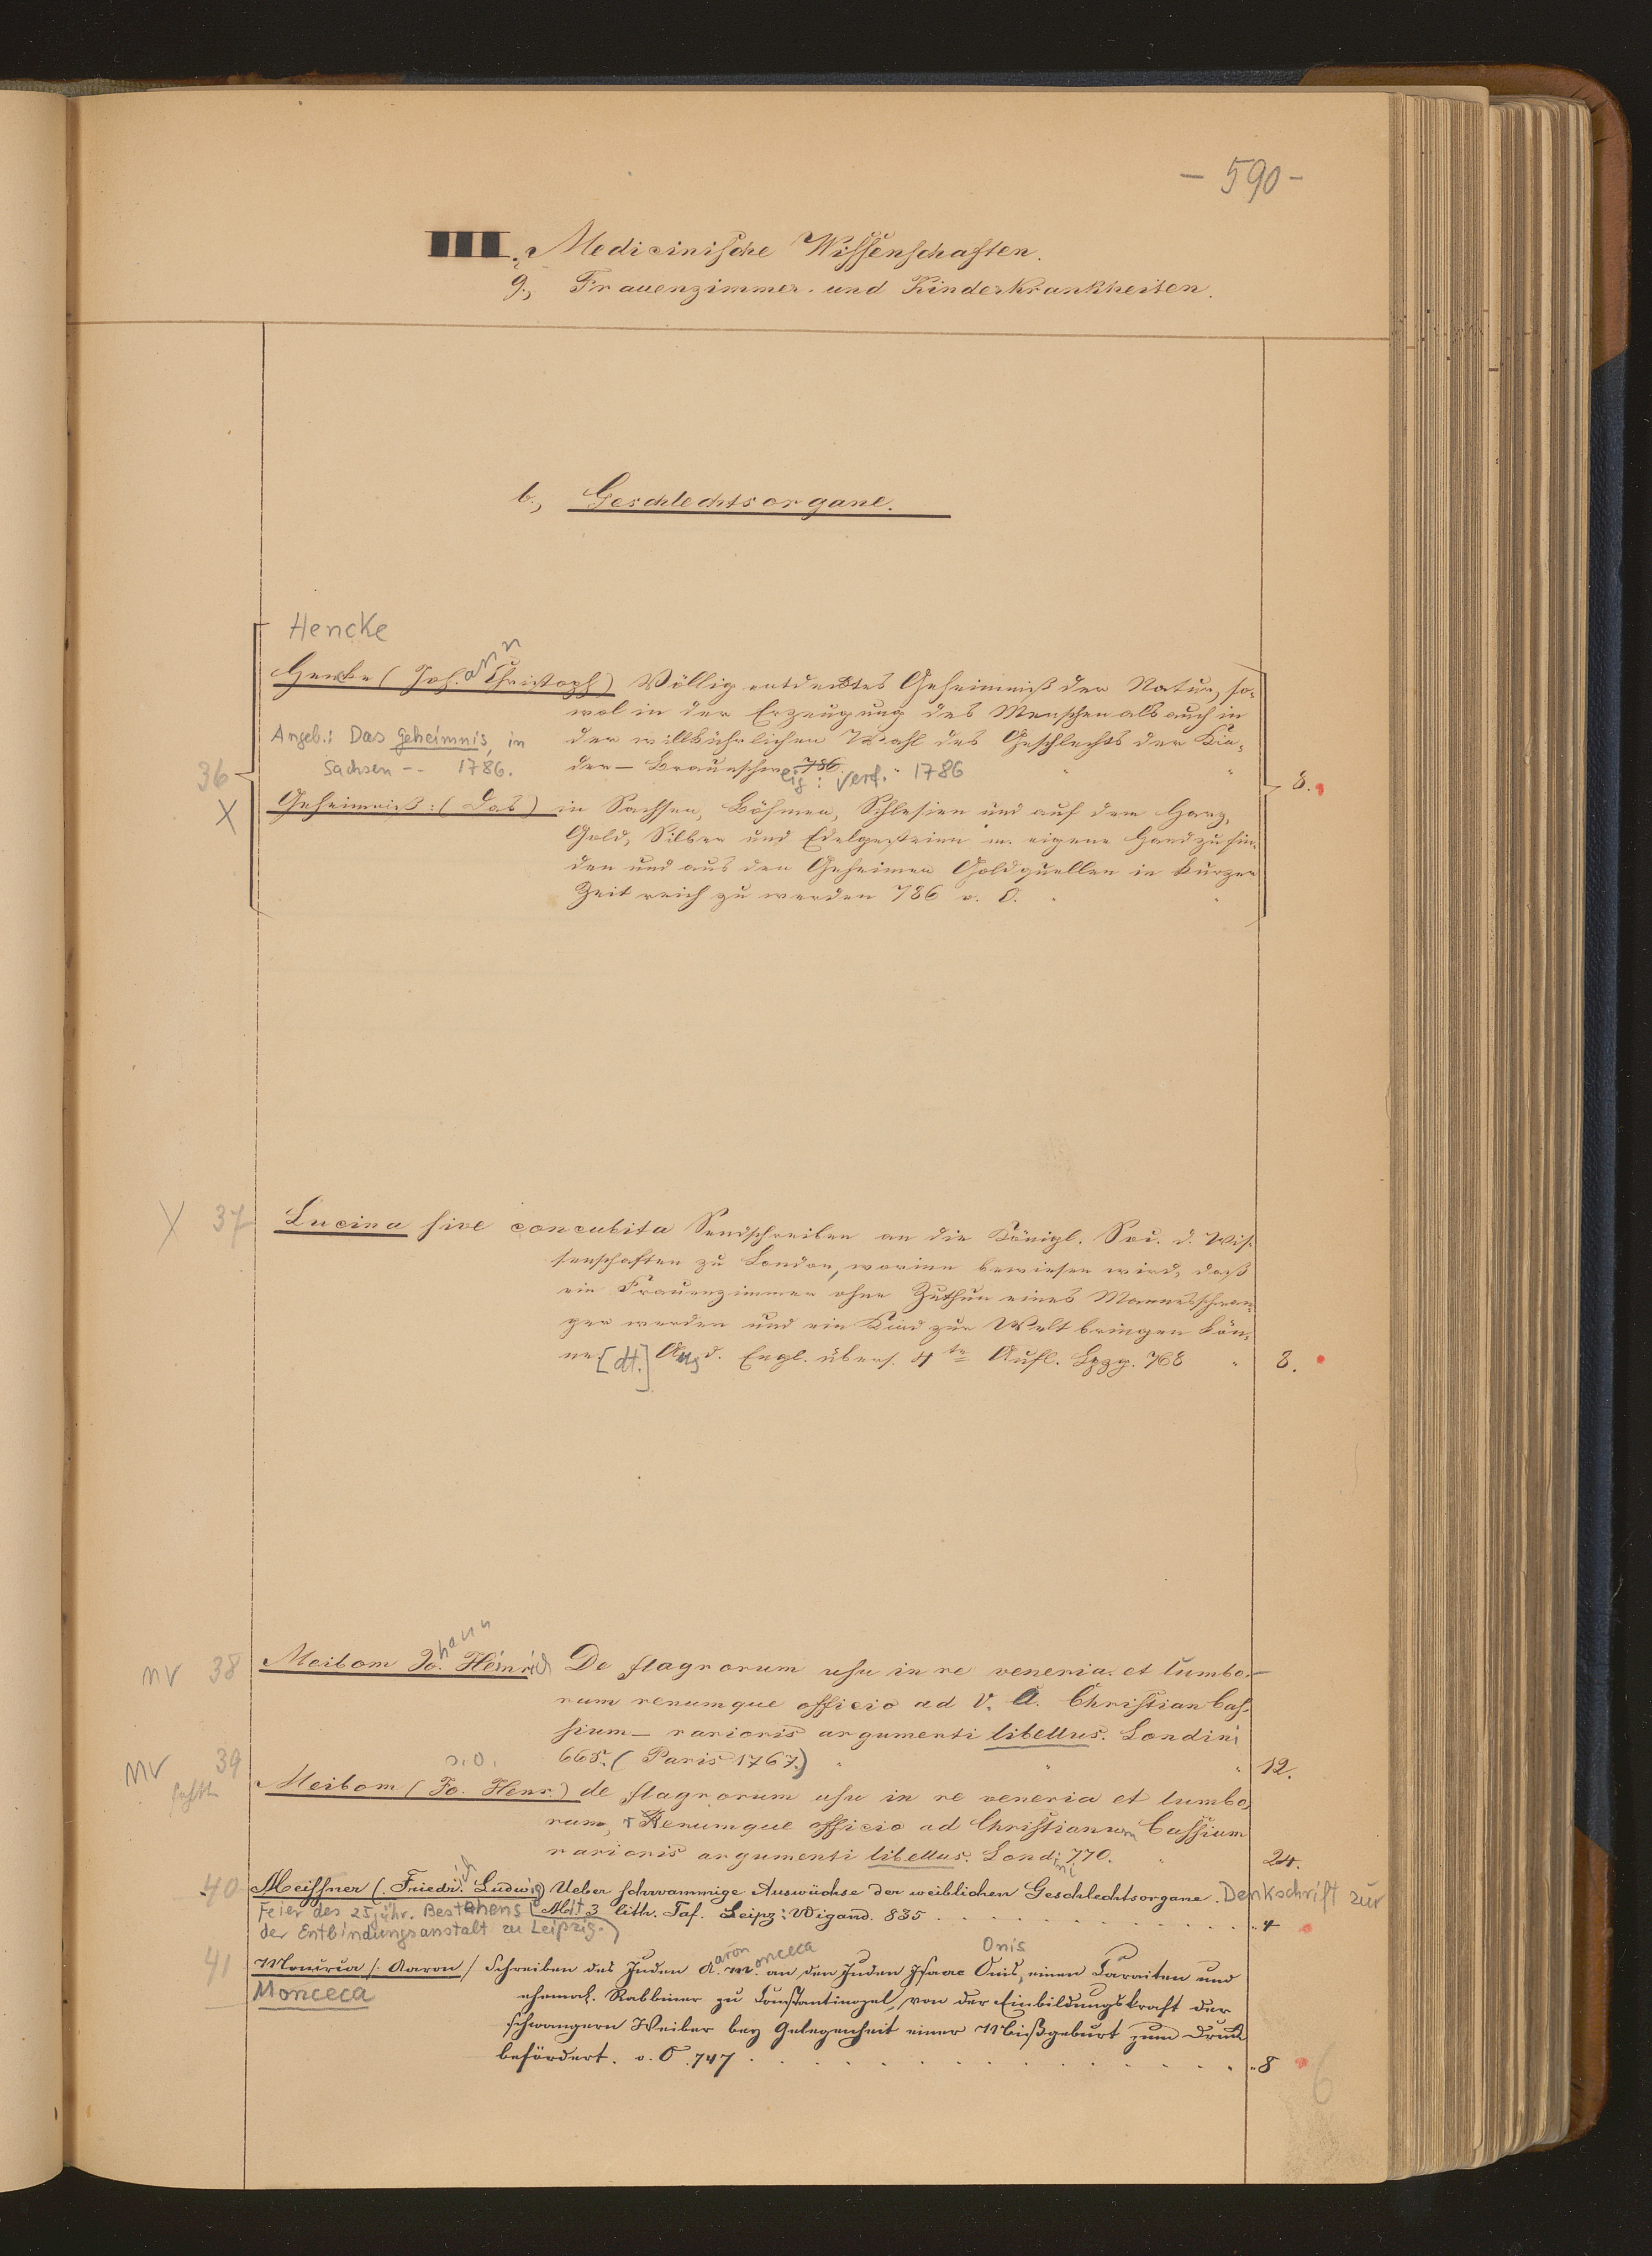 - 590 -
III. Medicinische Wissenschaften.
g., Frauenzimmer- und Kinderkrankheiten.
b., Geschlechtsorgane.
Hencke
Henke (Joh.ann Christoph) Völlig entdecktes Geheimniß der Natur, so-
wol in der Erzeugung des Menschen als auch in
Angeb.: Das Geheimnis, in
der willkührlichen Wahl des Geschlechts der Kin-
Sachsen -- 1786.
der — Braunschweig: Verf. 786. 1786
36
8.
X
Geheimniß: (Das) in Sachsen, Böhmen, Schlesien und auf dem Harz,
Gold, Silber und Edelgesteine m. eigene Hand zu fin-
den und aus den Geheimen Goldquellen in kurzer
Zeit reich zu werden 786 o. O.
X 37 Lucina sive concubita Sendschreiben an die Königl. Soc. d. Wis-
senschaften zu London, worinn bewiesen wird, daß
ein Frauenzimmer ohne Zuthun eines Mannes schwan-
ger werden und ein Kind zur Welt bringen kön-
ne. [dt.] Aus d. Engl. übers. 4te Aufl. Lpzg. 768 " 8.
nv 38 Meibom Jo.hann Heinrich De flagrorum usu in re veneria. et lumbo-
rum renumque officio ad V. A. Christian Cas-
sium — rarioris argumenti libellus. Londini
665. (Paris 1767.) " 12.
nv 39 fehlt
s. o.
Meibom (Jo. Henr.) de flagrorum usu in re veneria et lumbo-
rum, Renumque officio ad Christianum Cassium
rarioris argumenti libellus. Londini 770. 24.
40 Meissner (Friedrich Ludwig) Ueber schwammige Auswüchse der weiblichen Geschlechtsorgane. Denkschrift zur
Feier des 25jähr. Bestehens Mit 3 lith. Taf. Leipz: Wigand. 835 " 4
der Entbindungsanstalt zu Leipzig.)
41 Monceca (Aaron) Schreiben des Juden A.aron M.onceca an den Juden Isaac Onis, Onis einen Caraiten und
Monceca
ehemal. Rabbiner zu Constantinopel, von der Einbildungskraft der
schwangern Weiber bey Gelegenheit einer Mißgeburt zum Druck
befördert. o. O. 747 " 8
6